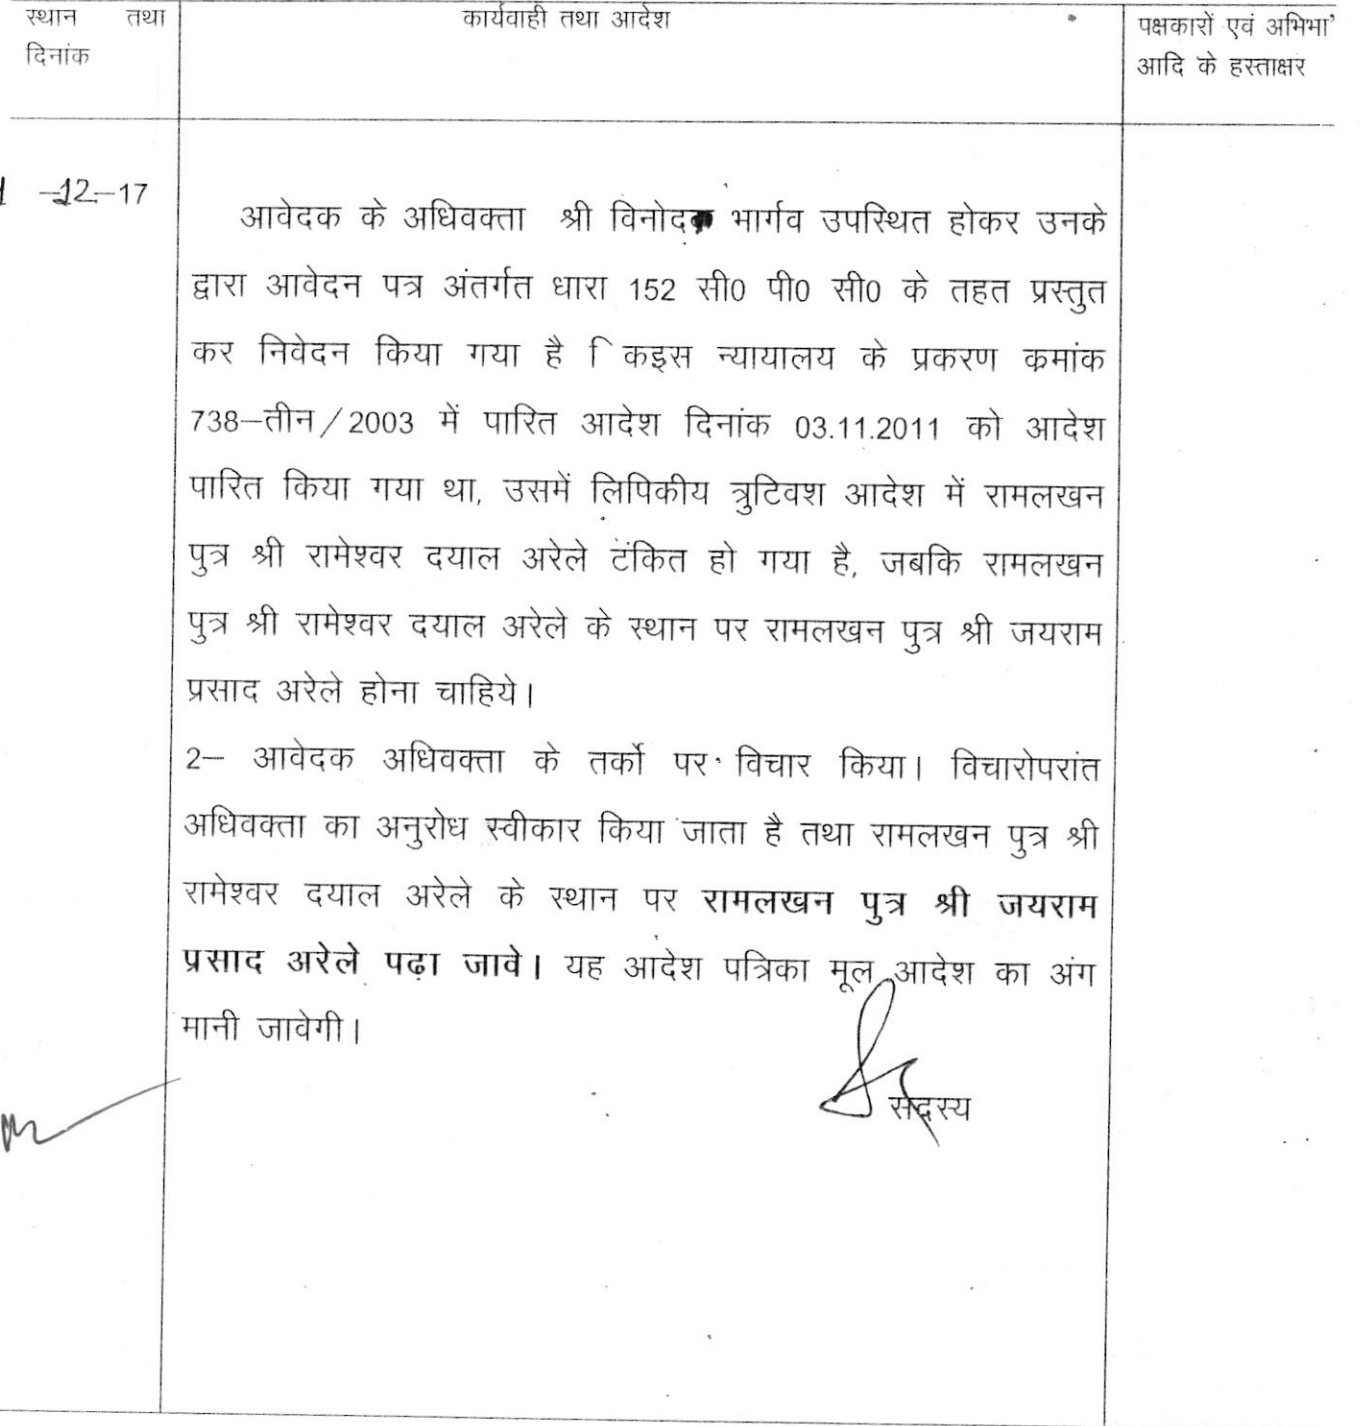 स्थान तथा
दिनांक
कार्यवाही तथा आदेश
पक्षकारों एवं अभिभा
आदि के हस्ताक्षर
-12-17
आवेदक के अधिवक्ता श्री विनोद भार्गव उपस्थित होकर उनके
द्वारा आवेदन पत्र अंतर्गत धारा 152 सी0 पी0 सी0 के तहत प्रस्तुत
कर निवेदन किया गया है ि कइस न्यायालय के प्रकरण क्रमांक
738–तीन/2003 में पारित आदेश दिनांक 03.11.2011 को आदेश
पारित किया गया था, उसमें लिपिकीय त्रुटिवश आदेश में रामलखन
पुत्र श्री रामेश्वर दयाल अरेले टंकित हो गया है, जबकि रामलखन
पुत्र श्री रामेश्वर दयाल अरेले के स्थान पर रामलखन पुत्र श्री जयराम
प्रसाद अरेले होना चाहिये।
2– आवेदक अधिवक्ता के तर्को पर विचार किया। विचारोपरांत
अधिवक्ता का अनुरोध स्वीकार किया जाता है तथा रामलखन पुत्र श्री
रामेश्वर दयाल अरेले के स्थान पर रामलखन पुत्र श्री जयराम
प्रसाद अरेले पढ़ा जावे। यह आदेश पत्रिका मूल आदेश का अंग
मानी जावेगी।
सदस्य